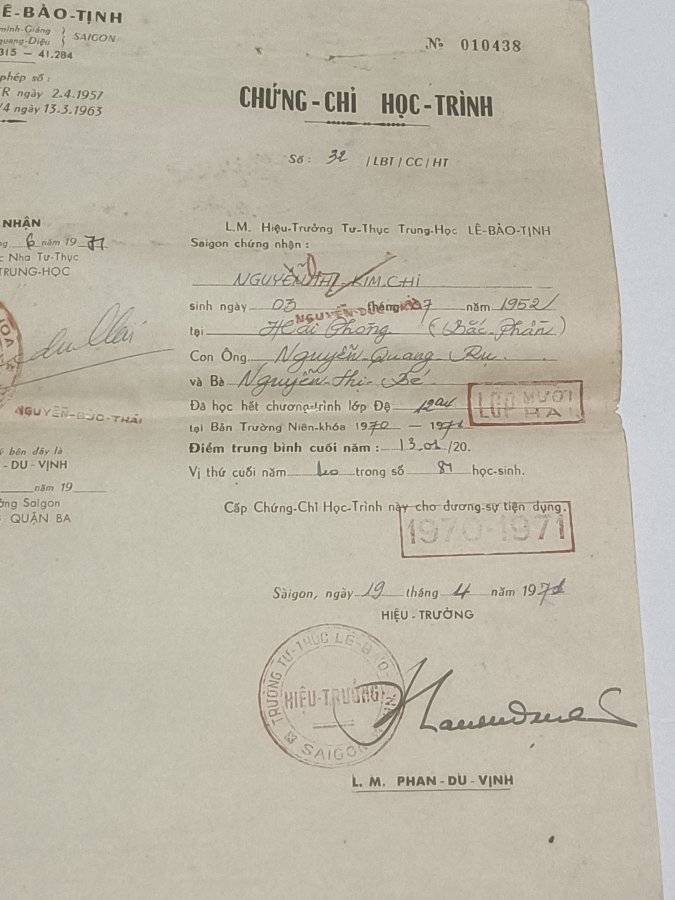 Ê-BẢO-TỊNH
minh-Giảng
quang-Diệu } SAIGON
315 — 41.284
phép số :
R ngày 2-4.1957
/4 ngày 13.3.1963
№ 010438
CHỨNG-CHỈ HỌC-TRÌNH
Số : 32 /LBT/CC/HT
NHẬN
6 năm 1971
c Nha Tư-Thục
TRUNG-HỌC
NGUYỄN-BÙC-THÁI
ý bên đây là
- DU - VỊNH
năm 19
ởng Saigon
QUẬN BA
L.M. Hiệu-Trưởng Tư-Thục Trung-Học LÊ-BẢO-TỊNH
Saigon chứng nhận :
NGUYỄN THỊ KIM.CHI
sinh ngày 03 tháng 07 năm 1952
tại Hải Phòng (Bắc-Phần)
Con Ông Nguyễn Quang
và Bà Nguyễn-Thị-Bé
Đã học hết chương-trình lớp Đệ 12A1 LỚP MƯỜI HAI
tại Bản Trường Niên-khóa 1970 — 1971
Điểm trung bình cuối năm : 13.01/20.
Vị thứ cuối năm trong số 81 học-sinh.
Cấp Chứng-Chỉ Học-Trình này cho đương-sự tiện dụng.
1970-1971
Sàigon, ngày 19 tháng 4 năm 1971
HIỆU - TRƯỞNG
TRƯỜNG TƯ-THỤC LÊ-BẢO-TỊNH
HIỆU-TRƯỞNG
SAIGON
L. M. PHAN - DU - VỊNH